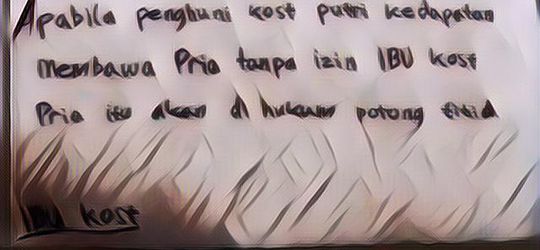 Apabila penghuni kost putri kedapatan
membawa Pria tanpa izin IBU kost
Pria itu akan di hukum potong titid
IBU kost